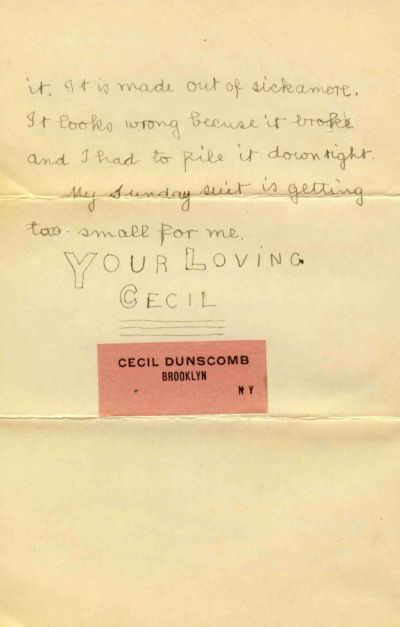 it. It is made out of sickamore.
It looks wrong becuse it broke
and I had to file it down right.
My Sunday suit is getting
too small for me.
YOUR LOVING
CECIL
CECIL DUNSCOMB
BROOKLYN
N Y